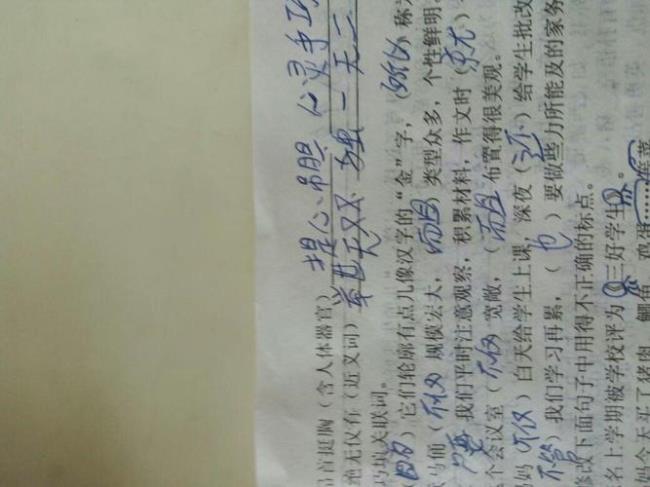 首挺胸（含人体器官）提心吊胆 心灵手巧
绝无仅有（近义词）举世无双 独一无二
填关联词。
（因为）它们轮廓有点儿像汉字的“金”字，（所以）称为
马俑（不仅）规模宏大，（而且）类型众多，个性鲜明。
（只要）我们平时注意观察，积累材料，作文时（就）
个会议室（不仅）宽敞，（而且）布置得很美观。
妈妈（不仅）白天给学生上课，深夜（还）给学生批改
（不管）我们学习再累，（也）要做些力所能及的家务
修改下面句子中用得不正确的标点。
名上学期被学校评为三好学生。
妈今天买了猪肉、鲫鱼、鸡蛋……等菜